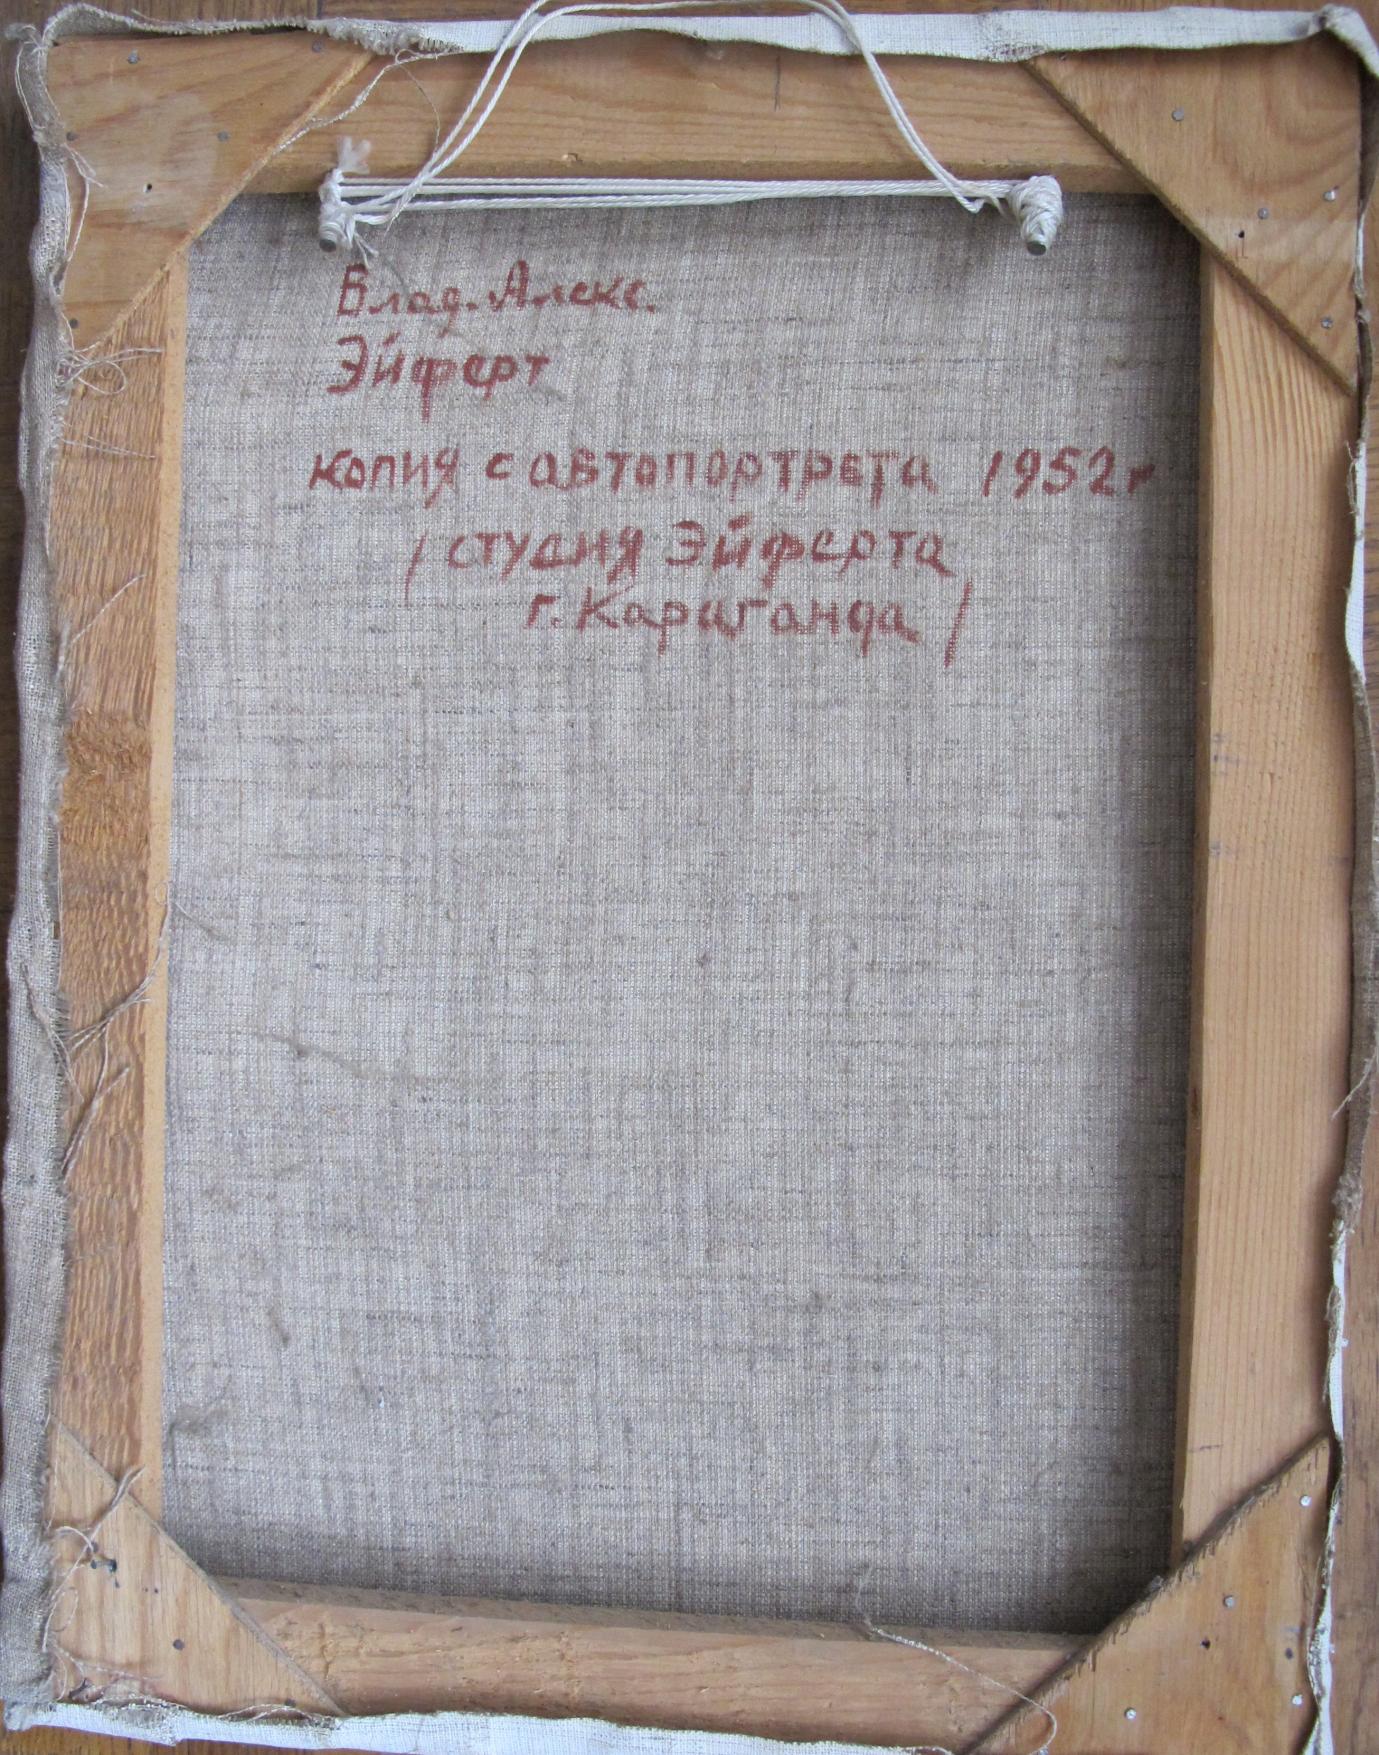 Влад. Алекс.
Эйферт
копия с автопортрета 1952г
/ студия Эйферта
г. Караганда /